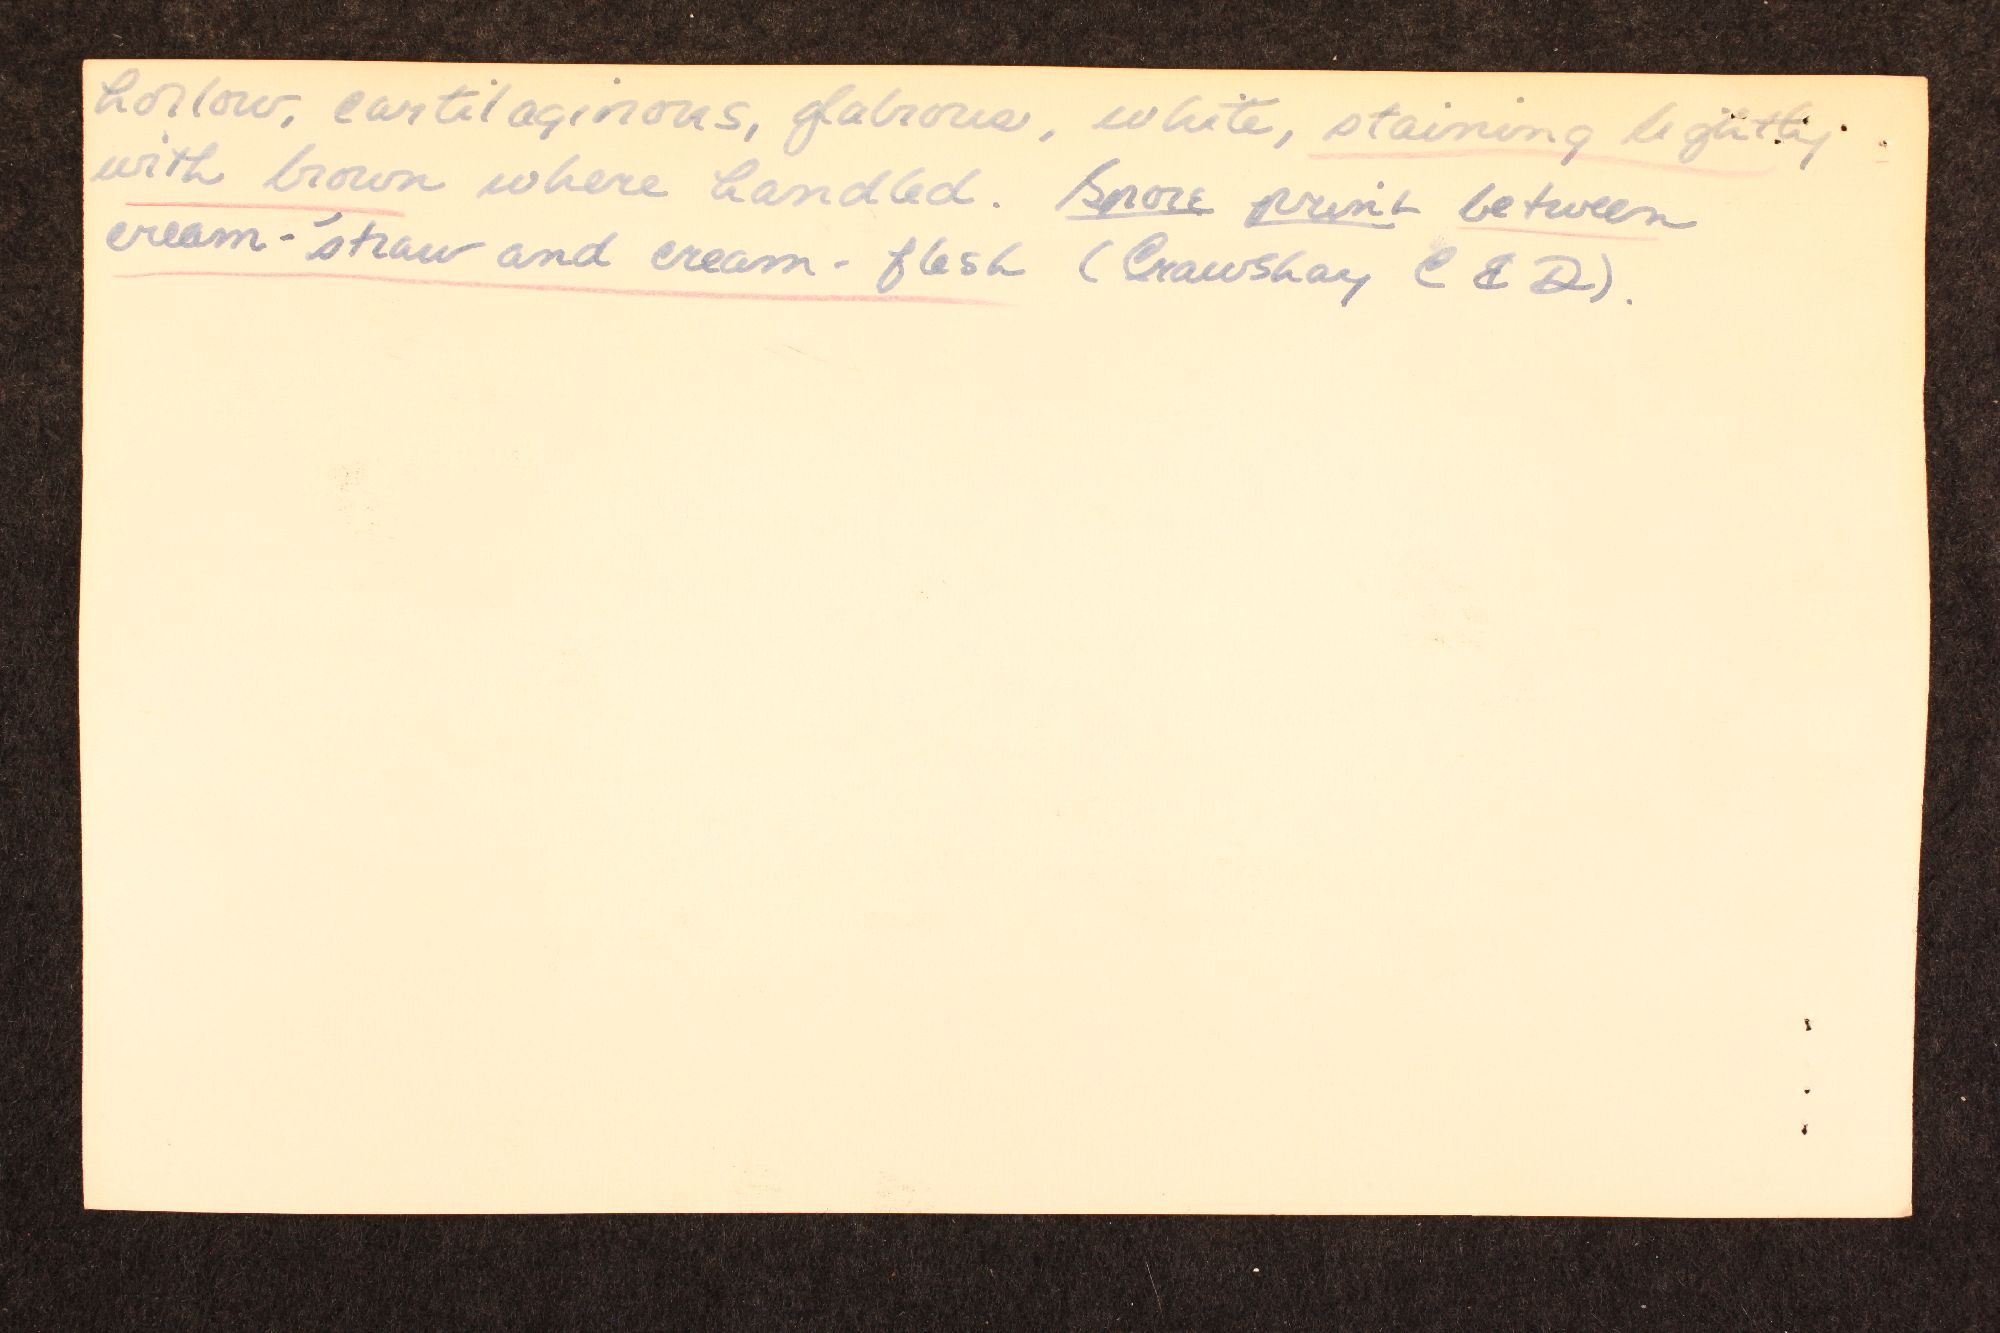 hollow, cartilaginous, glabrous, white, staining lightly
with brown where handled. Spore print between
cream-straw and cream-flesh (Crawshay C & D).